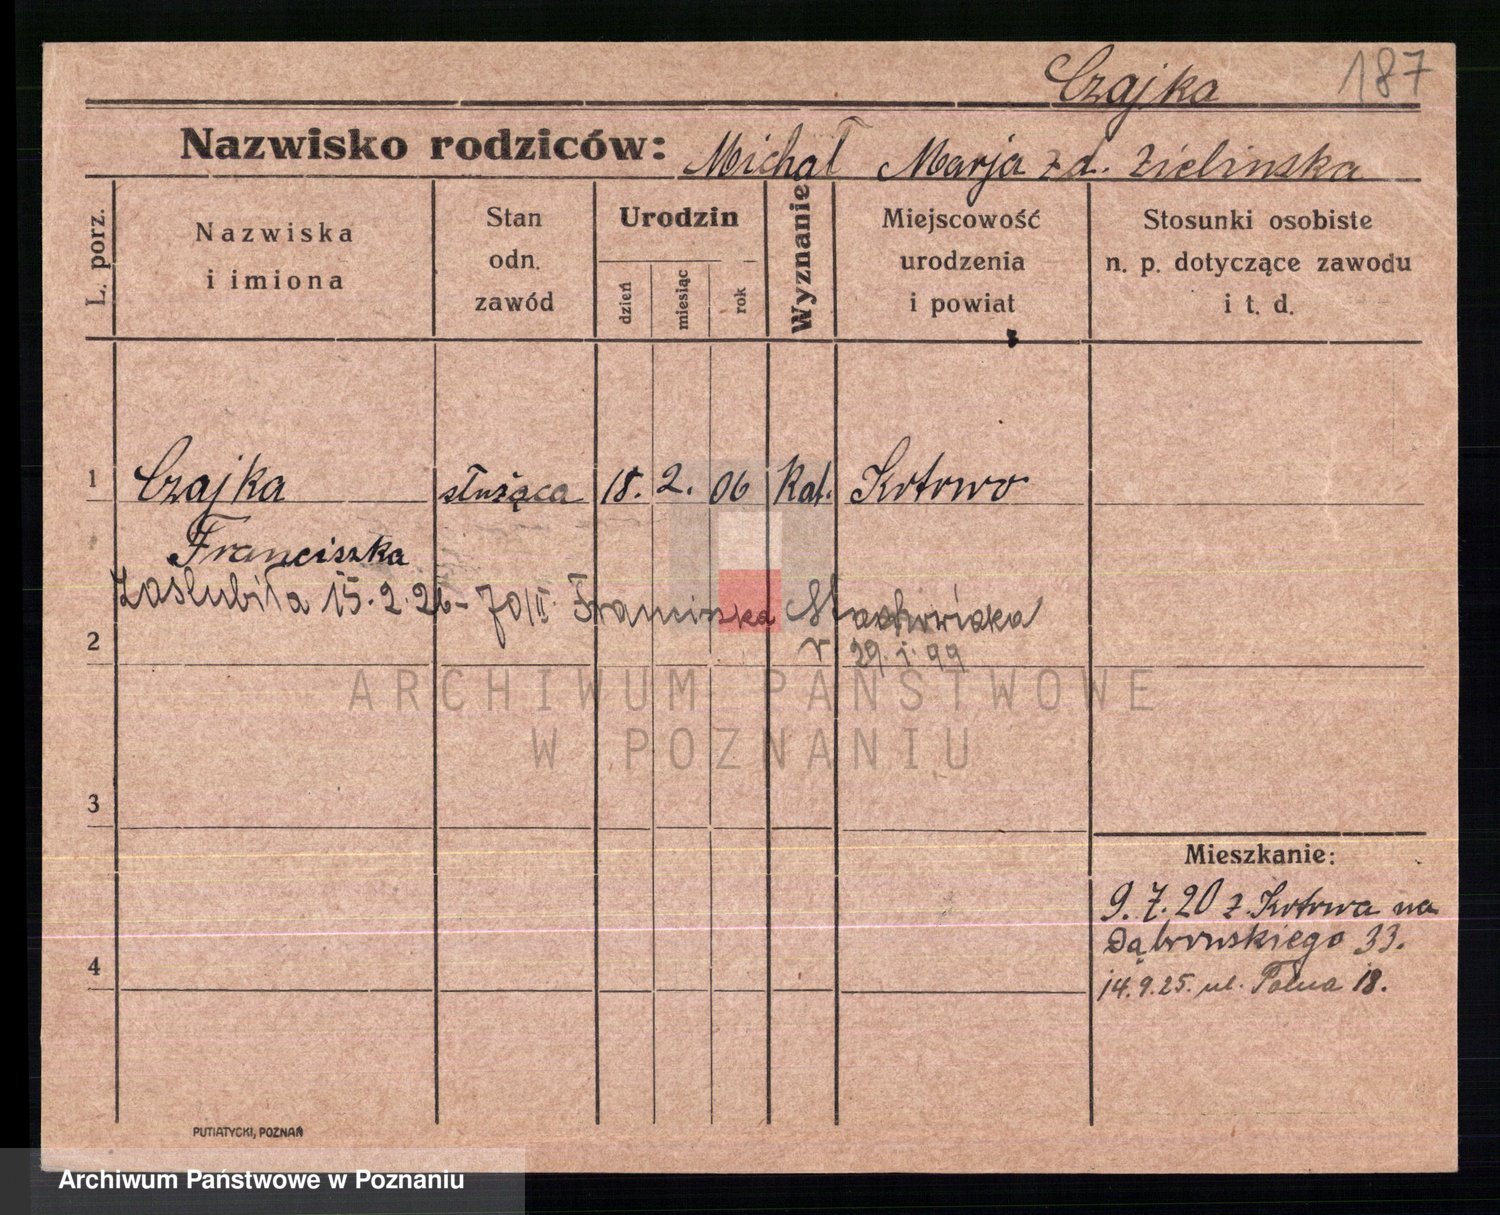 Czajka 187
Nazwisko rodziców: Michał Marja zd. Zielinska
L. porz.
Nazwiska
i imiona
Stan
odn.
zawód
Urodzin
dzień
miesiąc
rok
Wyznanie
Miejscowość
urodzenia
i powiat
Stosunki osobiste
n. p. dotyczące zawodu
i t. d.
1 Czajka służąca 18. 2. 06 kat. Kotowo
Franciszka
Zaslubiła 15.2.26 - 70/II Franciszka Stachowiaka
2 r 29.1.99
ARCHIWUM PAŃSTWOWE
W POZNANIU
3
Mieszkanie:
9.7.20 z Kotowa na
Dąbrowskiego 33.
4
14.9.25. ul. Polna 18.
PUTIATYCKI, POZNAŃ
Archiwum Państwowe w Poznaniu